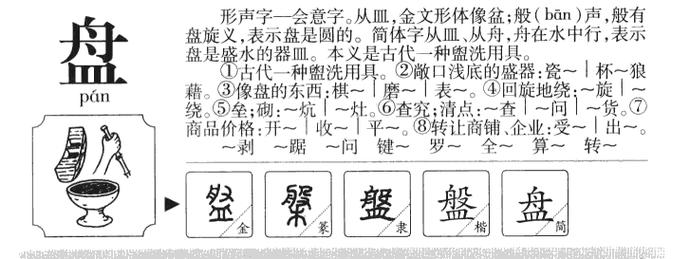 盘
pán
形声字—会意字。从皿,金文形体像盆;般(bān)声,般有
盘旋义,表示盘是圆的。简体字从皿、从舟,舟在水中行,表示
盘是盛水的器皿。本义是古代一种盥洗用具。
①古代一种盥洗用具。②敞口浅底的盛器:瓷~|杯~狼
藉。③像盘的东西:棋~|磨~|表~。④回旋地绕:~旋|~
绕。⑤垒;砌:~炕|~灶。⑥查究;清点:~查|~问|~货。⑦
商品价格:开~|收~|平~。⑧转让商铺、企业:受~|出~。
~剥 ~踞 ~问 键~ 罗~ 全~ 算~ 转~
金
篆
盤 隶
盤 楷
盘 简